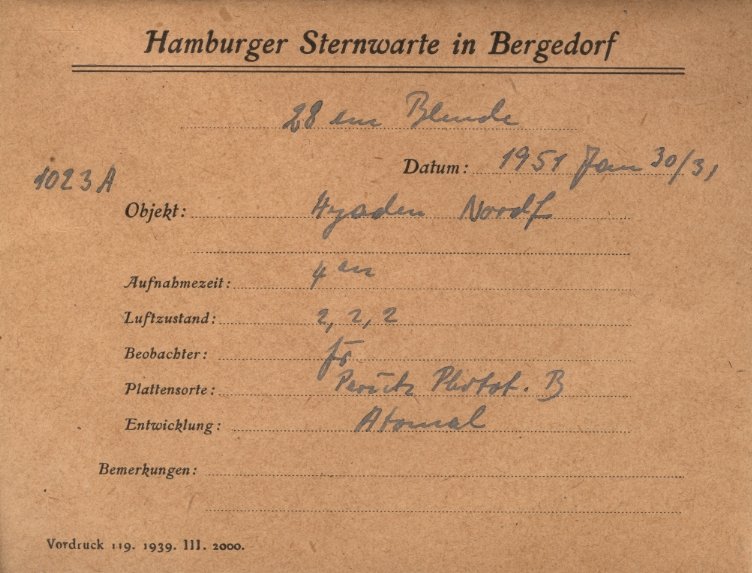 Hamburger Sternwarte in Bergedorf
28 cm Blende
Datum: 1951 Jan 30/31
1023A
Objekt: Hyaden Nordf
Aufnahmezeit: 4 m
Luftzustand: 2, 2, 2
Beobachter:
Plattensorte: Perutz Photot. B
Entwicklung: Atomal
Bemerkungen:
Vordruck 119. 1939. III. 2000.